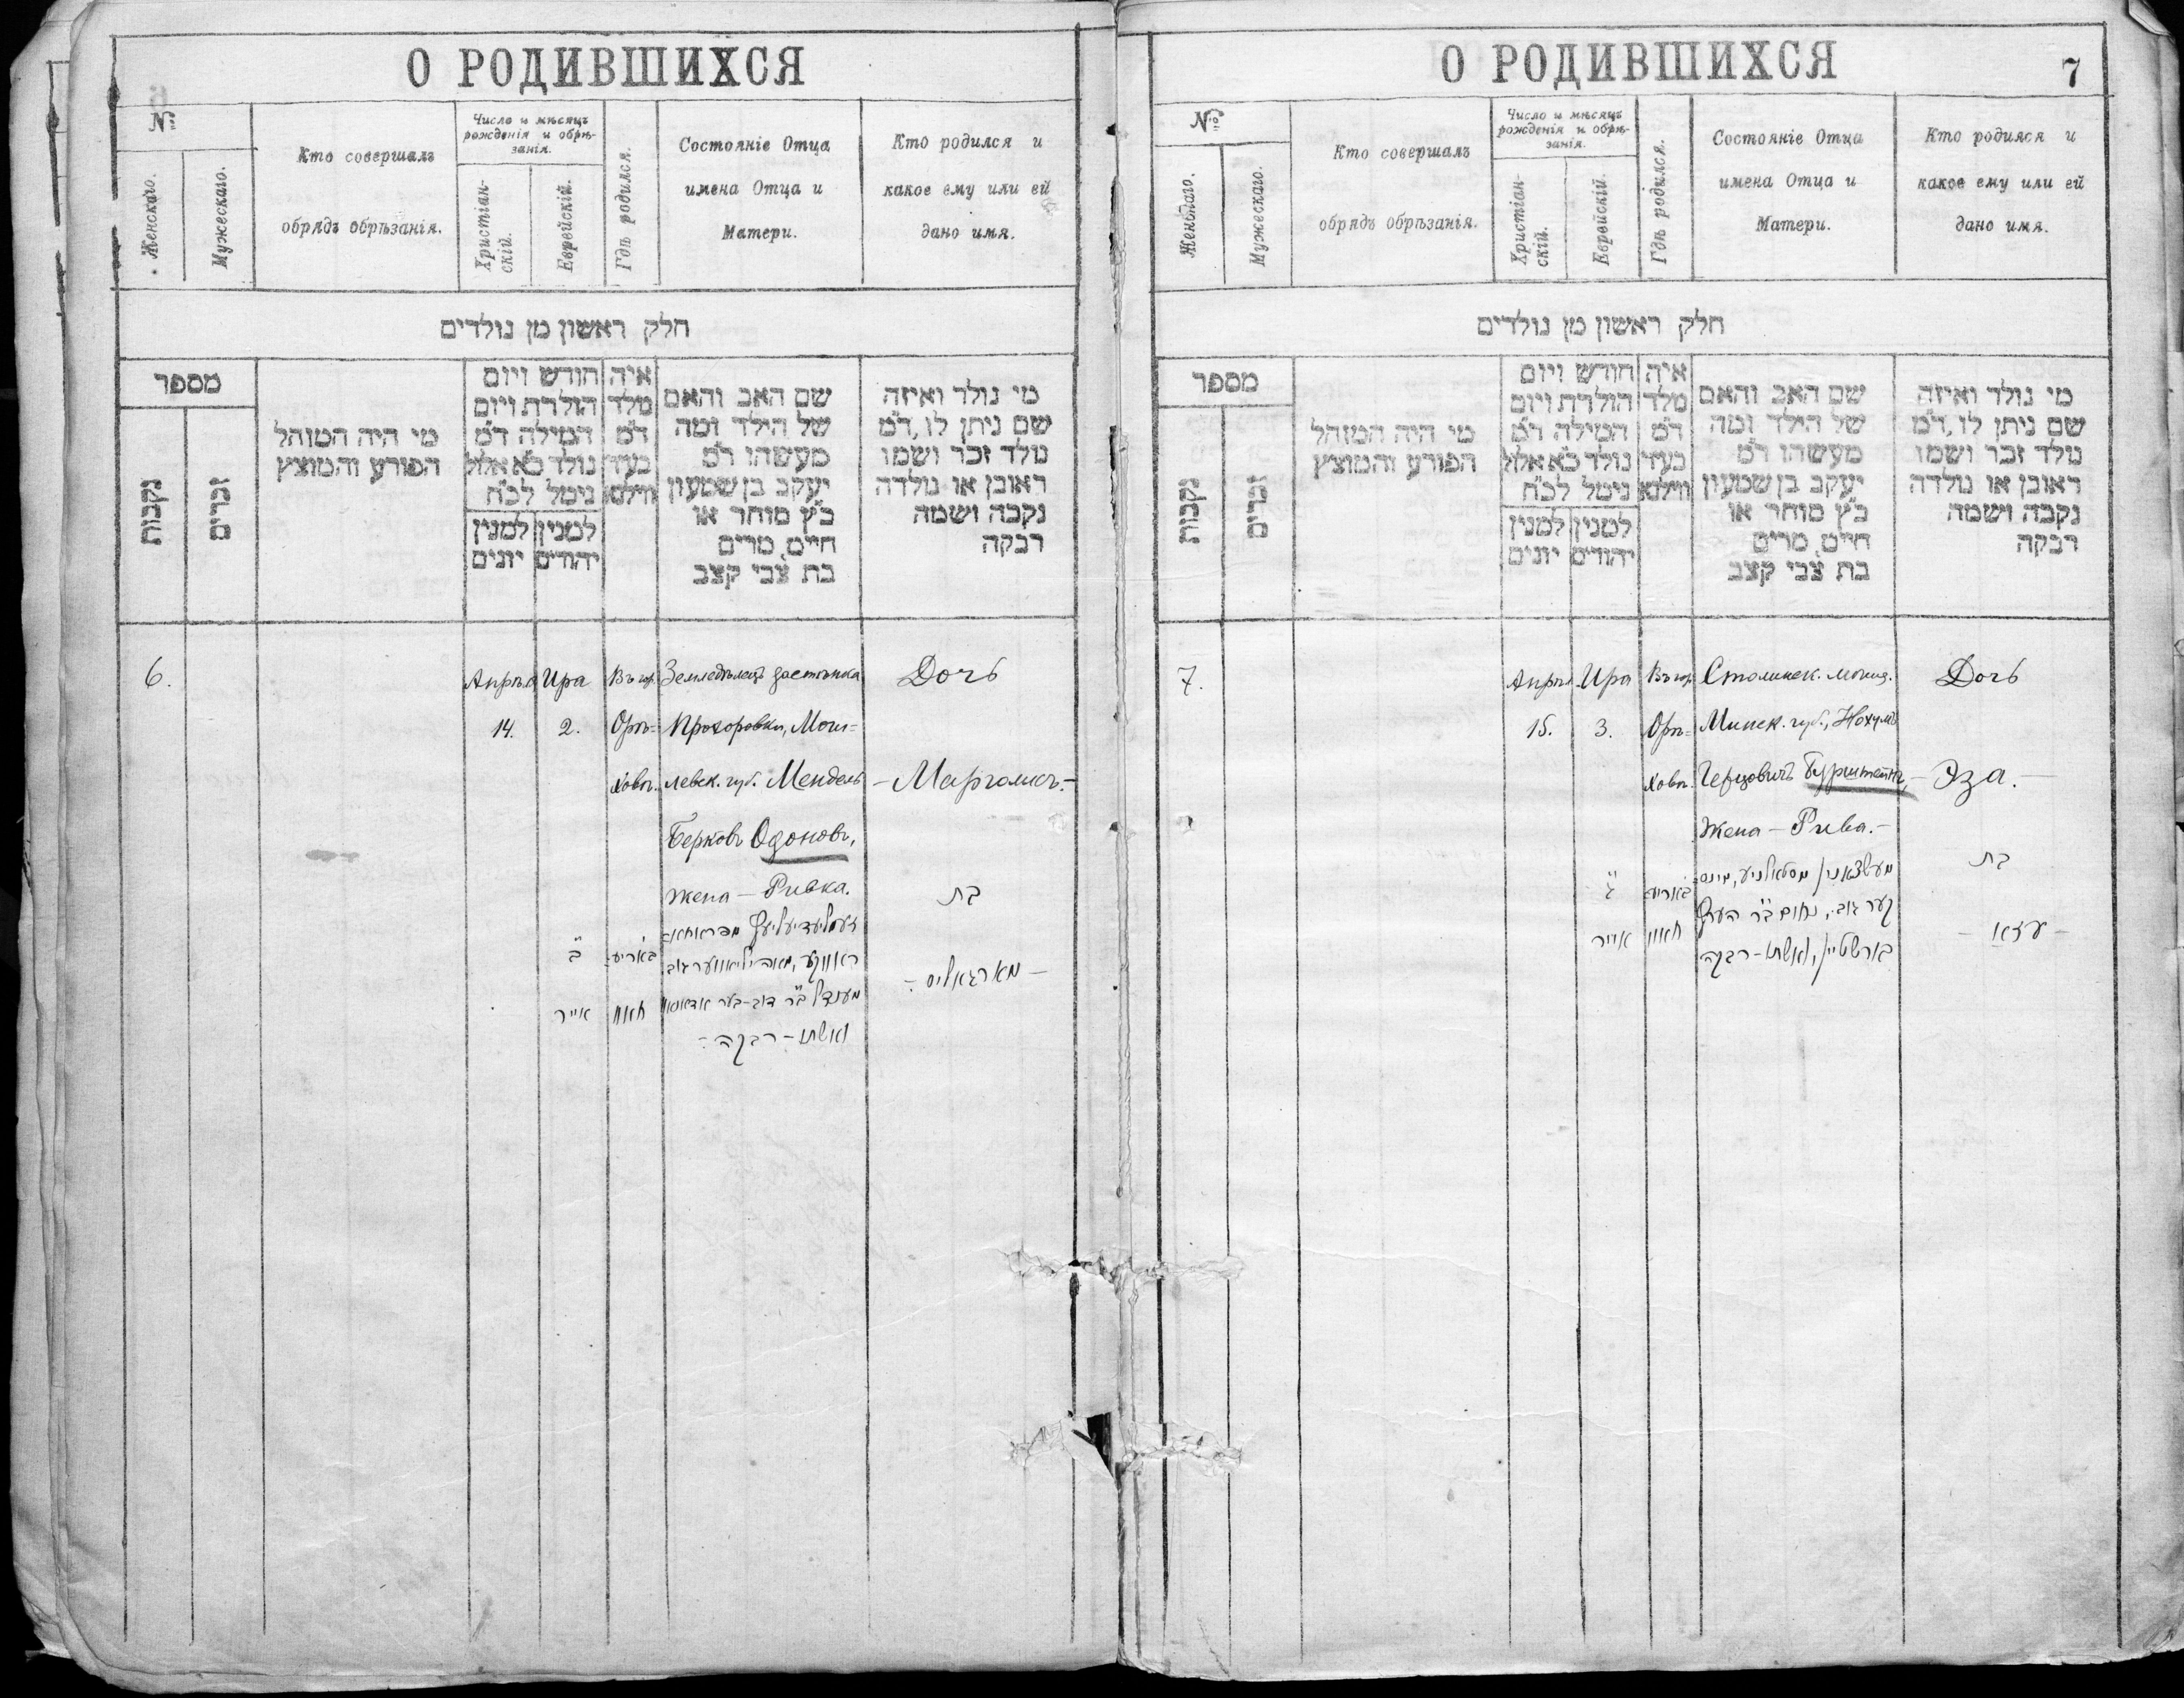 О РОДИВШИХСЯ
№
Женскаго.
Мужескаго.
Кто совершалъ
обрядъ обрѣзанія.
Число и мѣсяцъ
рожденія и обрѣ-
занія.
Христіан-
скій.
Еврейскій.
Гдѣ родился.
Состояніе Отца
имена Отца и
Матери.
Кто родился и
какое ему или ей
дано имя.
חלק ראשון מן נולדים
מספר
נקבות
זכרים
מי היה המוהל
הפורע והמוצץ
חודש ויום
הולדת ויום
המילה ד״מ
נולד כ״א אלול
נימל לכ״ח
למנין למנין
יהודים יונים
איה
מלד
ד״מ
בעיר
ווילנא
שם האב והאם
של הילד ומה
מעשהו ד״מ
יעקב בן שמעון
כ״ץ סוחר או
חייט, מרים
בת צבי קצב
מי נולד ואיזה
שם ניתן לו, ד״מ
נולד זכר ושמו
ראובן או נולדה
נקבה ושמה
רבקה
6.
Апрѣл
14.
Ира
2.
Въ гор.
Орѣ-
ховѣ.
Земледѣлецъ застѣнка
Прохоровки, Моги-
левск. губ. Мендель
Берковъ Одоновъ,
Жена — Ривка.
Дочь
— Марголисъ. —
ב״
אייר
מענדל ב״ר דוב-בער
ואשתו - רבקה -
בת
— מארגאליס —
О РОДИВШИХСЯ
7
№
Женскаго.
Мужескаго.
Кто совершалъ
обрядъ обрѣзанія.
Число и мѣсяцъ
рожденія и обрѣ-
занія.
Христіан-
скій.
Еврейскій.
Гдѣ родился.
Состояніе Отца
имена Отца и
Матери.
Кто родился и
какое ему или ей
дано имя.
חלק ראשון מן נולדים
מספר
נקבות
זכרים
מי היה המוהל
הפורע והמוצץ
חודש ויום
הולדת ויום
המילה ד״מ
נולד כ״א אלול
נימל לכ״ח
למנין למנין
יהודים יונים
איה
מלד
ד״מ
בעיר
ווילנא
שם האב והאם
של הילד ומה
מעשהו ד״מ
יעקב בן שמעון
כ״ץ סוחר או
חייט, מרים
בת צבי קצב
מי נולד ואיזה
שם ניתן לו, ד״מ
נולד זכר ושמו
ראובן או נולדה
נקבה ושמה
רבקה
7.
Апрѣл
15.
Ира
3.
Въ гор.
Орѣ-
ховѣ.
Столинск. мѣщ.
Минск. губ., Нохумъ
Герцовичъ Бурштейнъ,
Жена — Рива. —
Дочь
— Эза. —
ג״
אייר
נחום ב״ר הערץ
בורשטיין, ואשתו - רבקה
בת
— עזא —